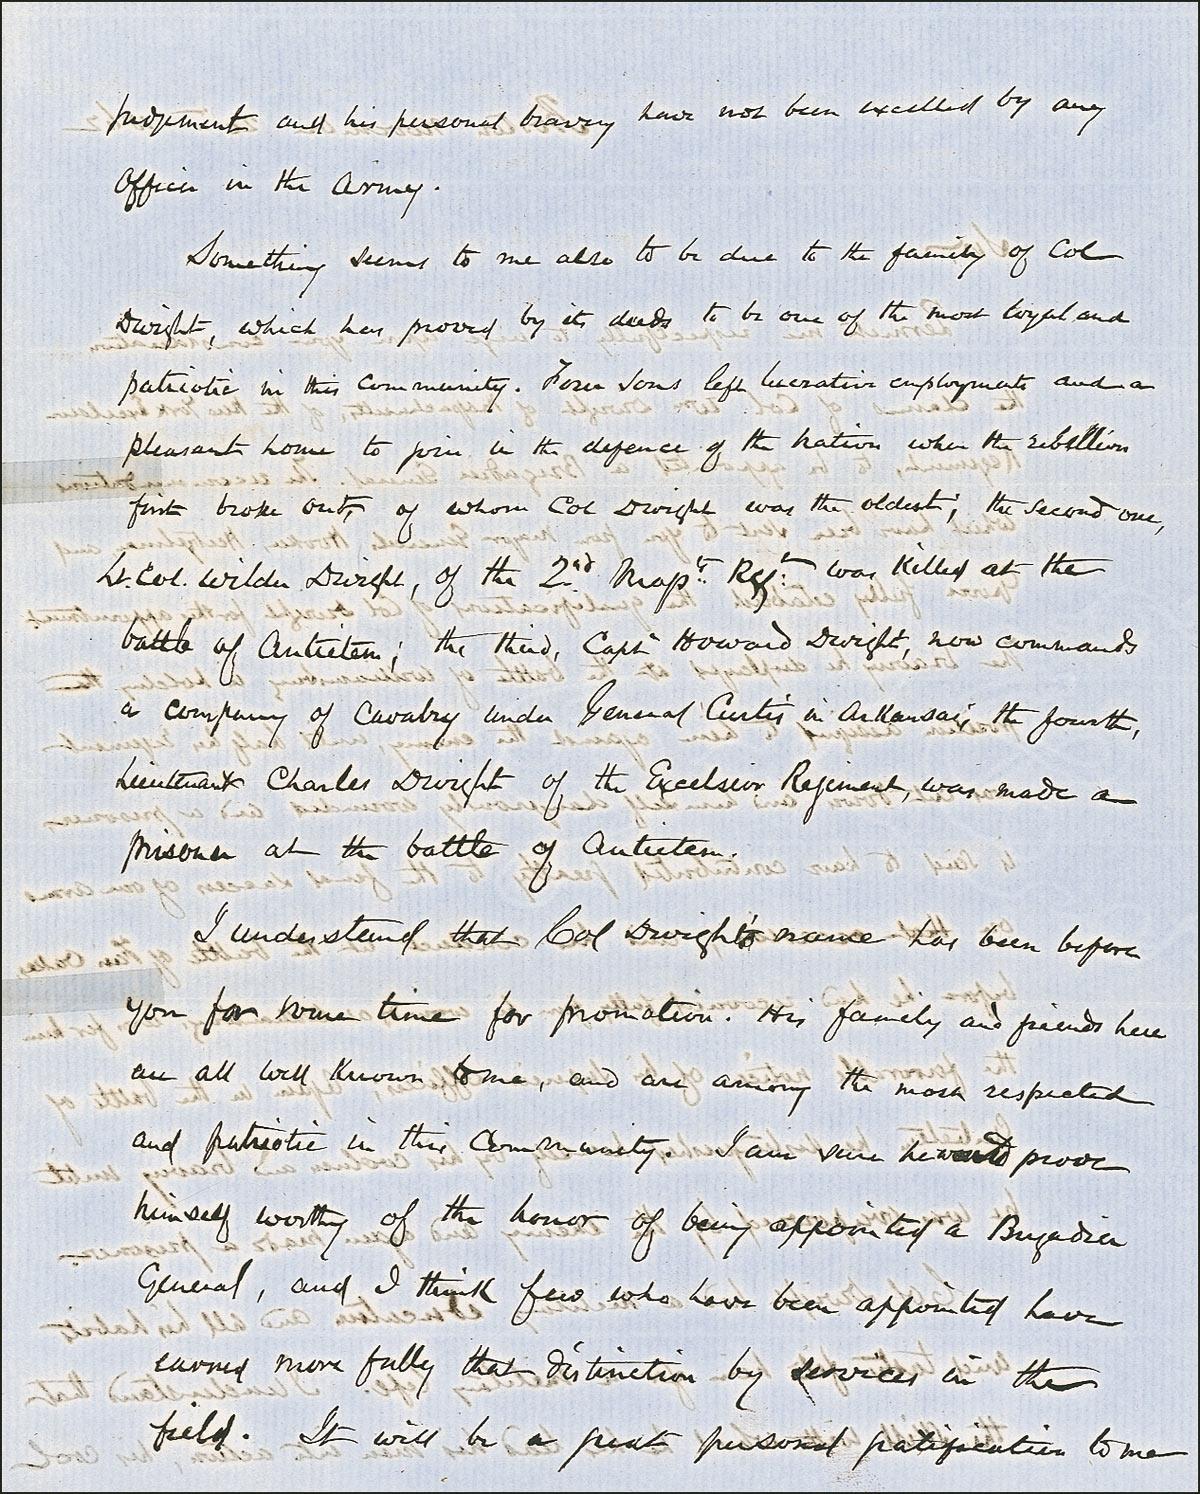 judgement and his personal bravery have not been excelled by any
Officer in the Army.
Something seems to me also to be due to the family of Col
Dwight, which has proved by its deeds to be one of the most loyal and
patriotic in this community. Four sons left lucrative employments and a
pleasant home to join in the defence of the Nation when the rebellion
first broke out, of whom Col Dwight was the oldest; the second one,
Lt. Col. Wilder Dwight, of the 2nd Massts Regt was killed at the
battle of Antietem; the third, Capt Howard Dwight, now commands
a company of Cavalry under General Curtis in Arkansas; the fourth,
Lieutenant Charles Dwight of the Excelsior Regiment, was made a
prisoner at the battle of Antietem.
I understand that Col Dwight's name has been before
you for some time for promotion. His family and friends here
are all well known to me, and are among the most respected
and patriotic in this Community. I am sure he would prove
himself worthy of the honor of being appointed a Brigadier
General, and I think few who have been appointed have
earned more fully that distinction by services in the
field. It will be a great personal gratification to me